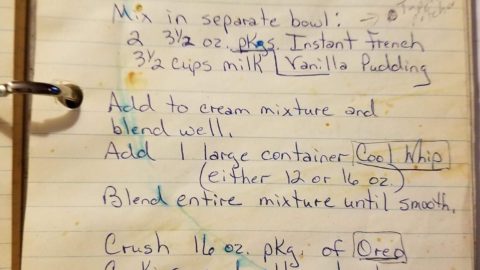 Mix in separate bowl:
2 3½ oz. pkgs. Instant French
3½ cups milk Vanilla Pudding
Add to cream mixture and
blend well.
Add 1 large container Cool Whip
(either 12 or 16 oz.)
Blend entire mixture until smooth.
Crush 16 oz. pkg. of Oreo